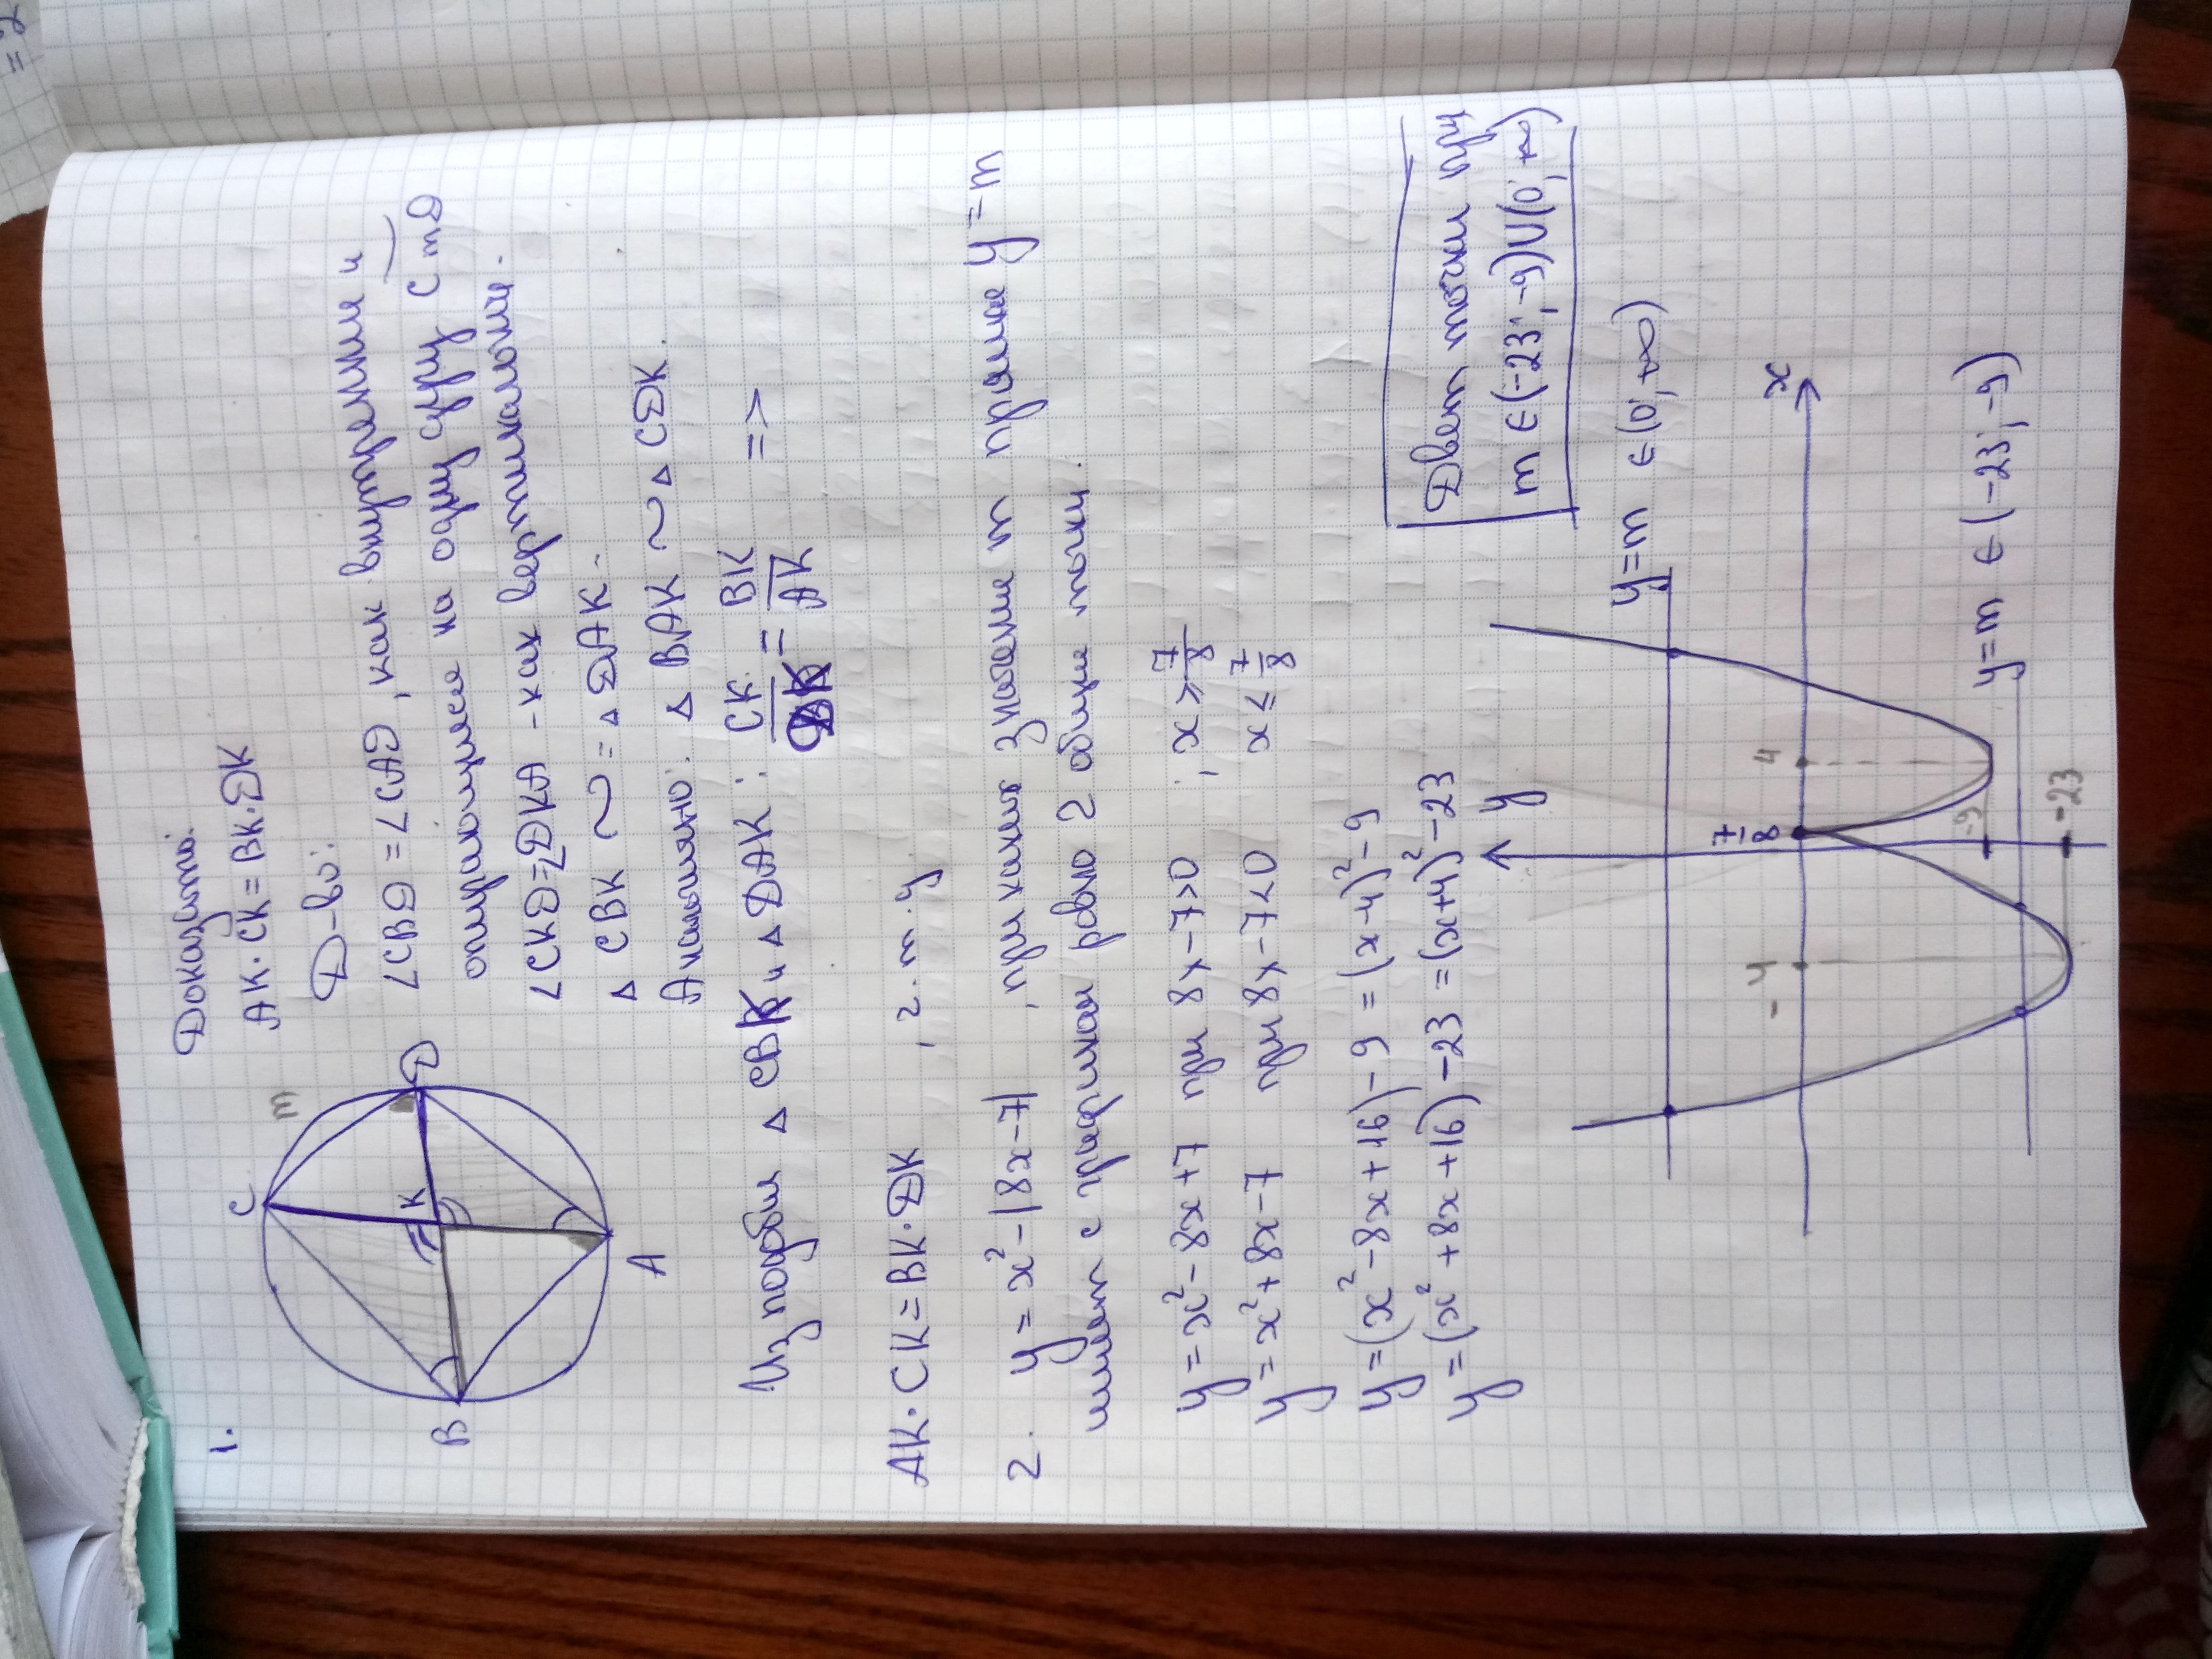 = 2
1.
Доказать:
AK·CK = BK·DK
Д-во:
∠CBD = ∠CAD, как внутренние и
опирающиеся на одну дугу CmD
∠CKB = ∠DKA - как вертикальные.
△ CBK ~ = △ DAK.
Аналогично: △ BAK ~ △ CDK.
C
m
D
K
B
A
Из подобия △ CBK и △ DAK: CK/DK = BK/AK =>
AK·CK = BK·DK , ч.т.д.
2. y = x² - |8x-7| , при каких значение m прямые y = m
имеет с графиком ровно 2 общие точки.
y = x² - 8x + 7 при 8x - 7 > 0 ; x > 7/8
y = x² + 8x - 7 при 8x - 7 < 0 x ≤ 7/8
y = (x² - 8x + 16) - 9 = (x-4)² - 9
y = (x² + 8x + 16) - 23 = (x+4)² - 23
Двет точки при
m ∈ (-23; -9) ∪ (0; +∞)
y = m ∈ (0; +∞)
y
7/8
-4
4
x
-9
y = m ∈ (-23; -9)
-23